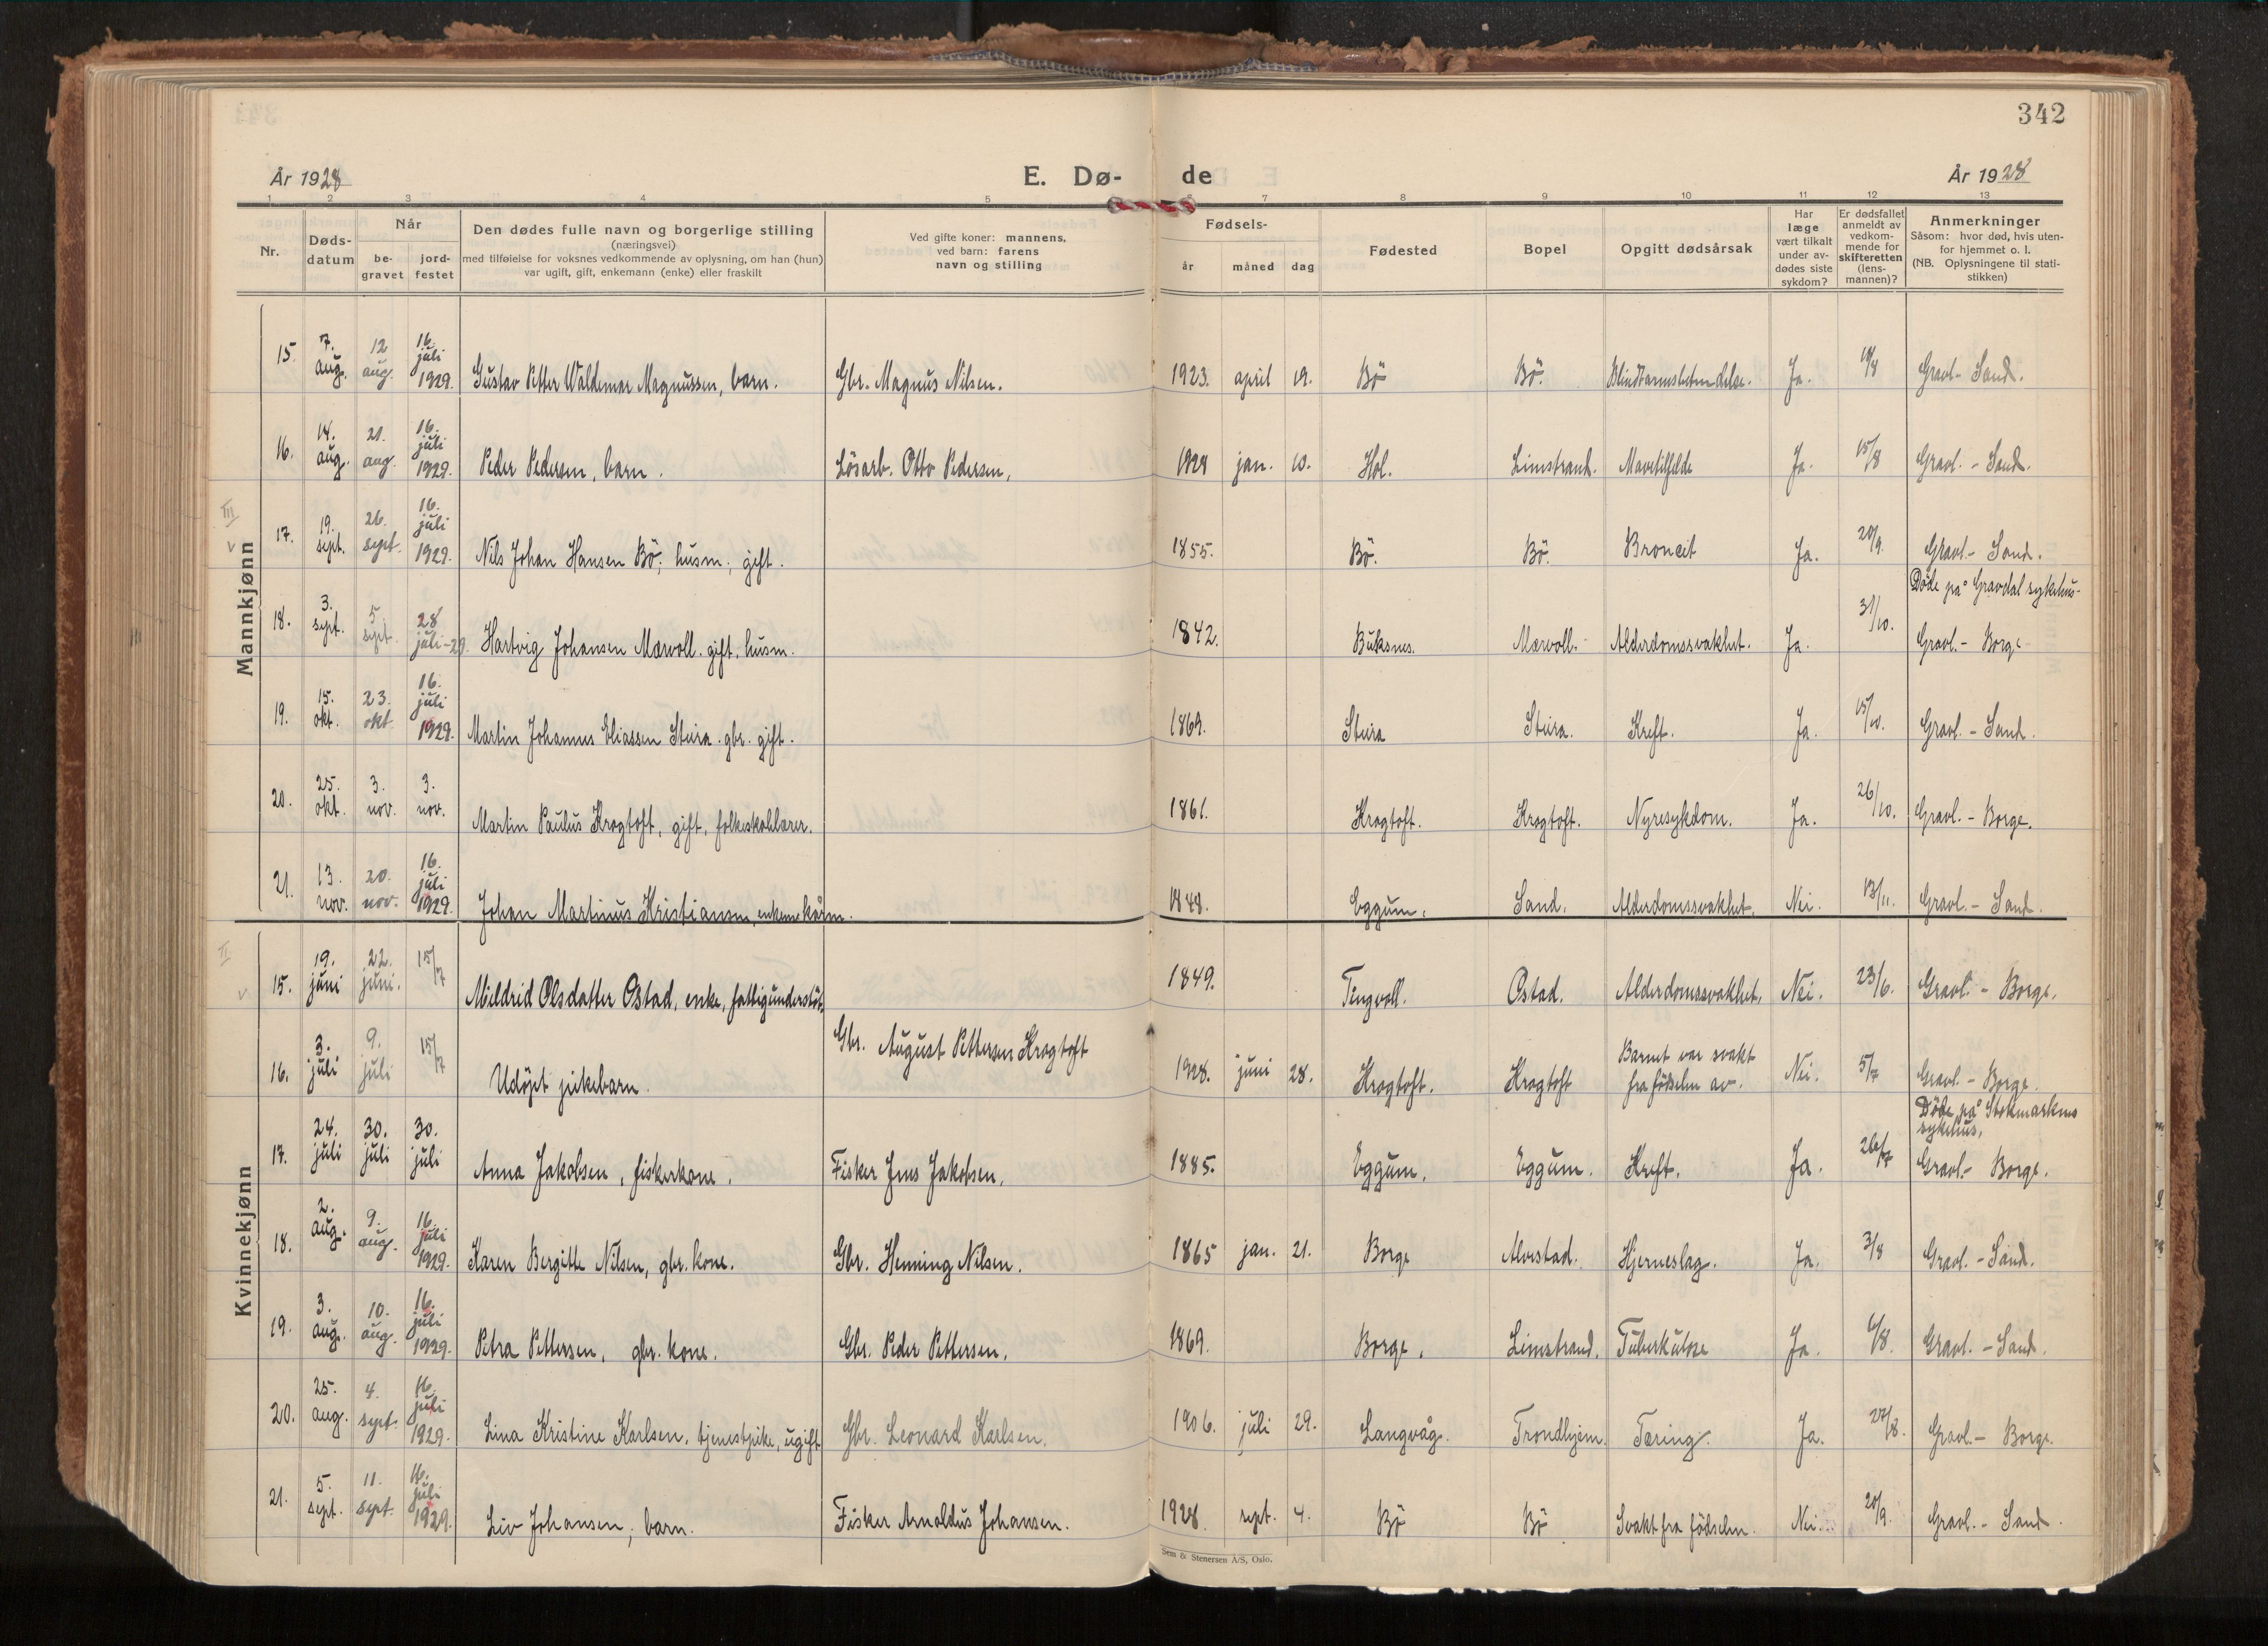 342
År 1928 E. Dø- de År 1928
1 2 3 4 5 6 7 8 9 10 11 12 13
Nr. Døds-datum Når be-gravet jord-festet Den dødes fulle navn og borgerlige stilling (næringsvei) med tilføielse for voksnes vedkommende av oplysning, om han (hun) var ugift, gift, enkemann (enke) eller fraskilt Ved gifte koner: mannens, ved barn: farens navn og stilling Fødsels- år måned dag Fødested Bopel Opgitt dødsårsak Har læge vært tilkalt under av-dødes siste sykdom? Er dødsfallet anmeldt av vedkom-mende for skifteretten (lens-mannen)? Anmerkninger Såsom: hvor død, hvis uten-for hjemmet o. l. (NB. Oplysningene til stati-stikken)
Mannkjønn
15. 7. aug. 12 aug. 16. juli 1929. Gustav Petter Waldemar Magnussen, barn. Gbr. Magnus Nilsen. 1923. april 19. Bö Bö. Blindtarmsbetendelse. Ja. 10/8 Gravl. - Sand.
16. 14. aug. 21. aug. 16. juli 1929. Peder Pedersen, barn. Lösarb. Otto Pedersen, 1928 jan. 10. Hol. Limstrand. Mavetilfelde Ja. 15/8 Gravl. - Sand.
III v
17. 19. sept. 26. sept. 16. juli 1929. Nils Johan Hansen Bö; husm; gift. 1855. Bö. Bö. Broncit Ja. 20/9. Gravl. - Sand.
18. 3. sept. 5 sept. 28 juli-29. Hartvig Johansen Mærvoll. gift. husm. 1842. Buksnes. Mærvoll. Alderdomssvakhet. Ja. 31/10. Döde på Gravdal sykehus. Gravl. - Borge
19. 15. okt. 23. okt. 16. juli 1929. Martin Johannes Eliassen Stura. gbr. gift. 1869. Stura Stura. Kreft. Ja. 15/10. Gravl. - Sand.
20. 25. okt. 3. nov. 3. nov. Martin Paulus Krogtoft, gift, folkeskolelærer. 1861. Krogtoft. Krogtoft. Nyresykdom. Ja. 26/10. Gravl. - Borge.
21. 13. nov. 20. nov. 16. juli 1929. Johan Martinus Kristiansen, enkem. kårm. 1848. Eggum. Sand. Alderdomssvakhet. Nei. 13/11. Gravl. - Sand.
II v
Kvinnekjønn
15. 19. juni 22. juni. 15/7 Mildrid Olsdatter Ostad, enke, fattigunderstöt. 1849. Tingvoll. Ostad. Alderdomssvakhet. Nei. 23/6. Gravl. - Borge.
16. 3. juli 9. juli 15/7 Udöpt pikebarn. Gbr. August Pettersen Krogtoft 1928. juni 28. Krogtoft. Krogtoft Barnet var svakt fra födselen av. Nei. 5/7 Gravl. - Borge.
17. 24. juli 30. juli 30. juli Anna Jakobsen, fiskerkone. Fisker Jens Jakobsen. 1885. Eggum. Eggum. Kreft. Ja. 26/7 Döde på Stokmarknes sykehus. Gravl. - Borge.
18. 2. aug. 9. aug. 16. juli 1929. Karen Bergitte Nilsen, gbr. kone. Gbr. Henning Nilsen. 1865 jan. 21. Borge Alvestad. Hjerneslag. Ja. 3/8 Gravl. - Sand.
19. 3. aug. 10. aug. 16. juli 1929. Petra Pettersen, gbr. kone. Gbr. Peder Pettersen. 1869. Borge. Limstrand. Tuberkulose Ja. 6/8. Gravl. - Sand.
20. 25. aug. 4. sept. 16. juli 1929. Lina Kristine Karlsen, tjenestpike, ugift Gbr. Leonard Karlsen. 1906. juli 29. Langvåg. Trondhjem. Tæring. Ja. 27/8. Gravl. - Borge.
21. 5. sept. 11. sept. 16. juli 1929. Liv Johansen, barn. Fisker Arnoldus Johansen. 1928. sept. 4. Bö Bö Svakt fra födselen. Nei. 20/9. Gravl. - Sand.
Sem & Stenersen A/S, Oslo.